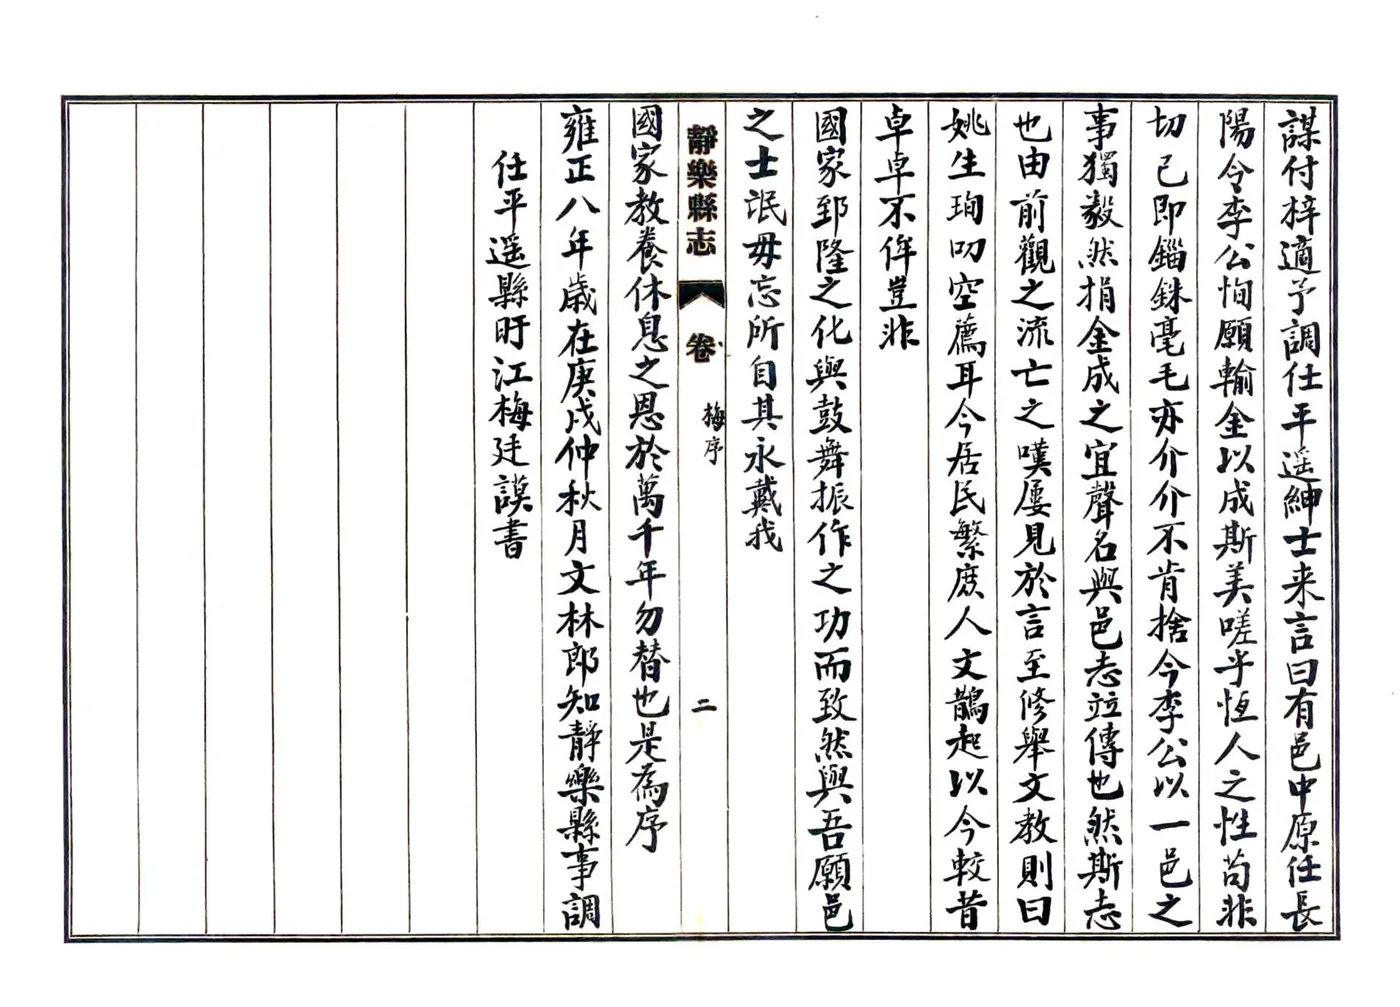 謀付梓適予調任平遥紳士来言曰有邑中原任長
陽令李公恂願輸金以成斯美嗟乎恆人之性苟非
切己即錙銖毫毛亦介介不肯捨今李公以一邑之
事獨毅然捐金成之宜聲名與邑志竝傳也然斯志
也由前觀之流亡之嘆屢見於言至修舉文教則曰
姚生珣叨空薦耳今居民繁庶人文鵲起以今較昔
卓卓不侔豈非
國家郅隆之化與鼓舞振作之功而致然與吾願邑
之士氓毋忘所自其永戴我
靜樂縣志
卷
梅序
二
國家教養休息之恩於萬千年勿替也是為序
雍正八年歲在庚戌仲秋月文林郎知靜樂縣事調
任平遥縣盱江梅廷謨書